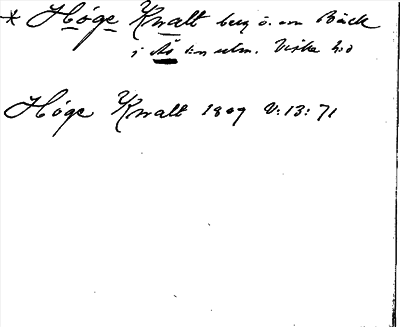 * Höge Knalt berg ö. om Bäck
i Ås sn utm. Viske hd
Höge Knalt 1809 V:13:71